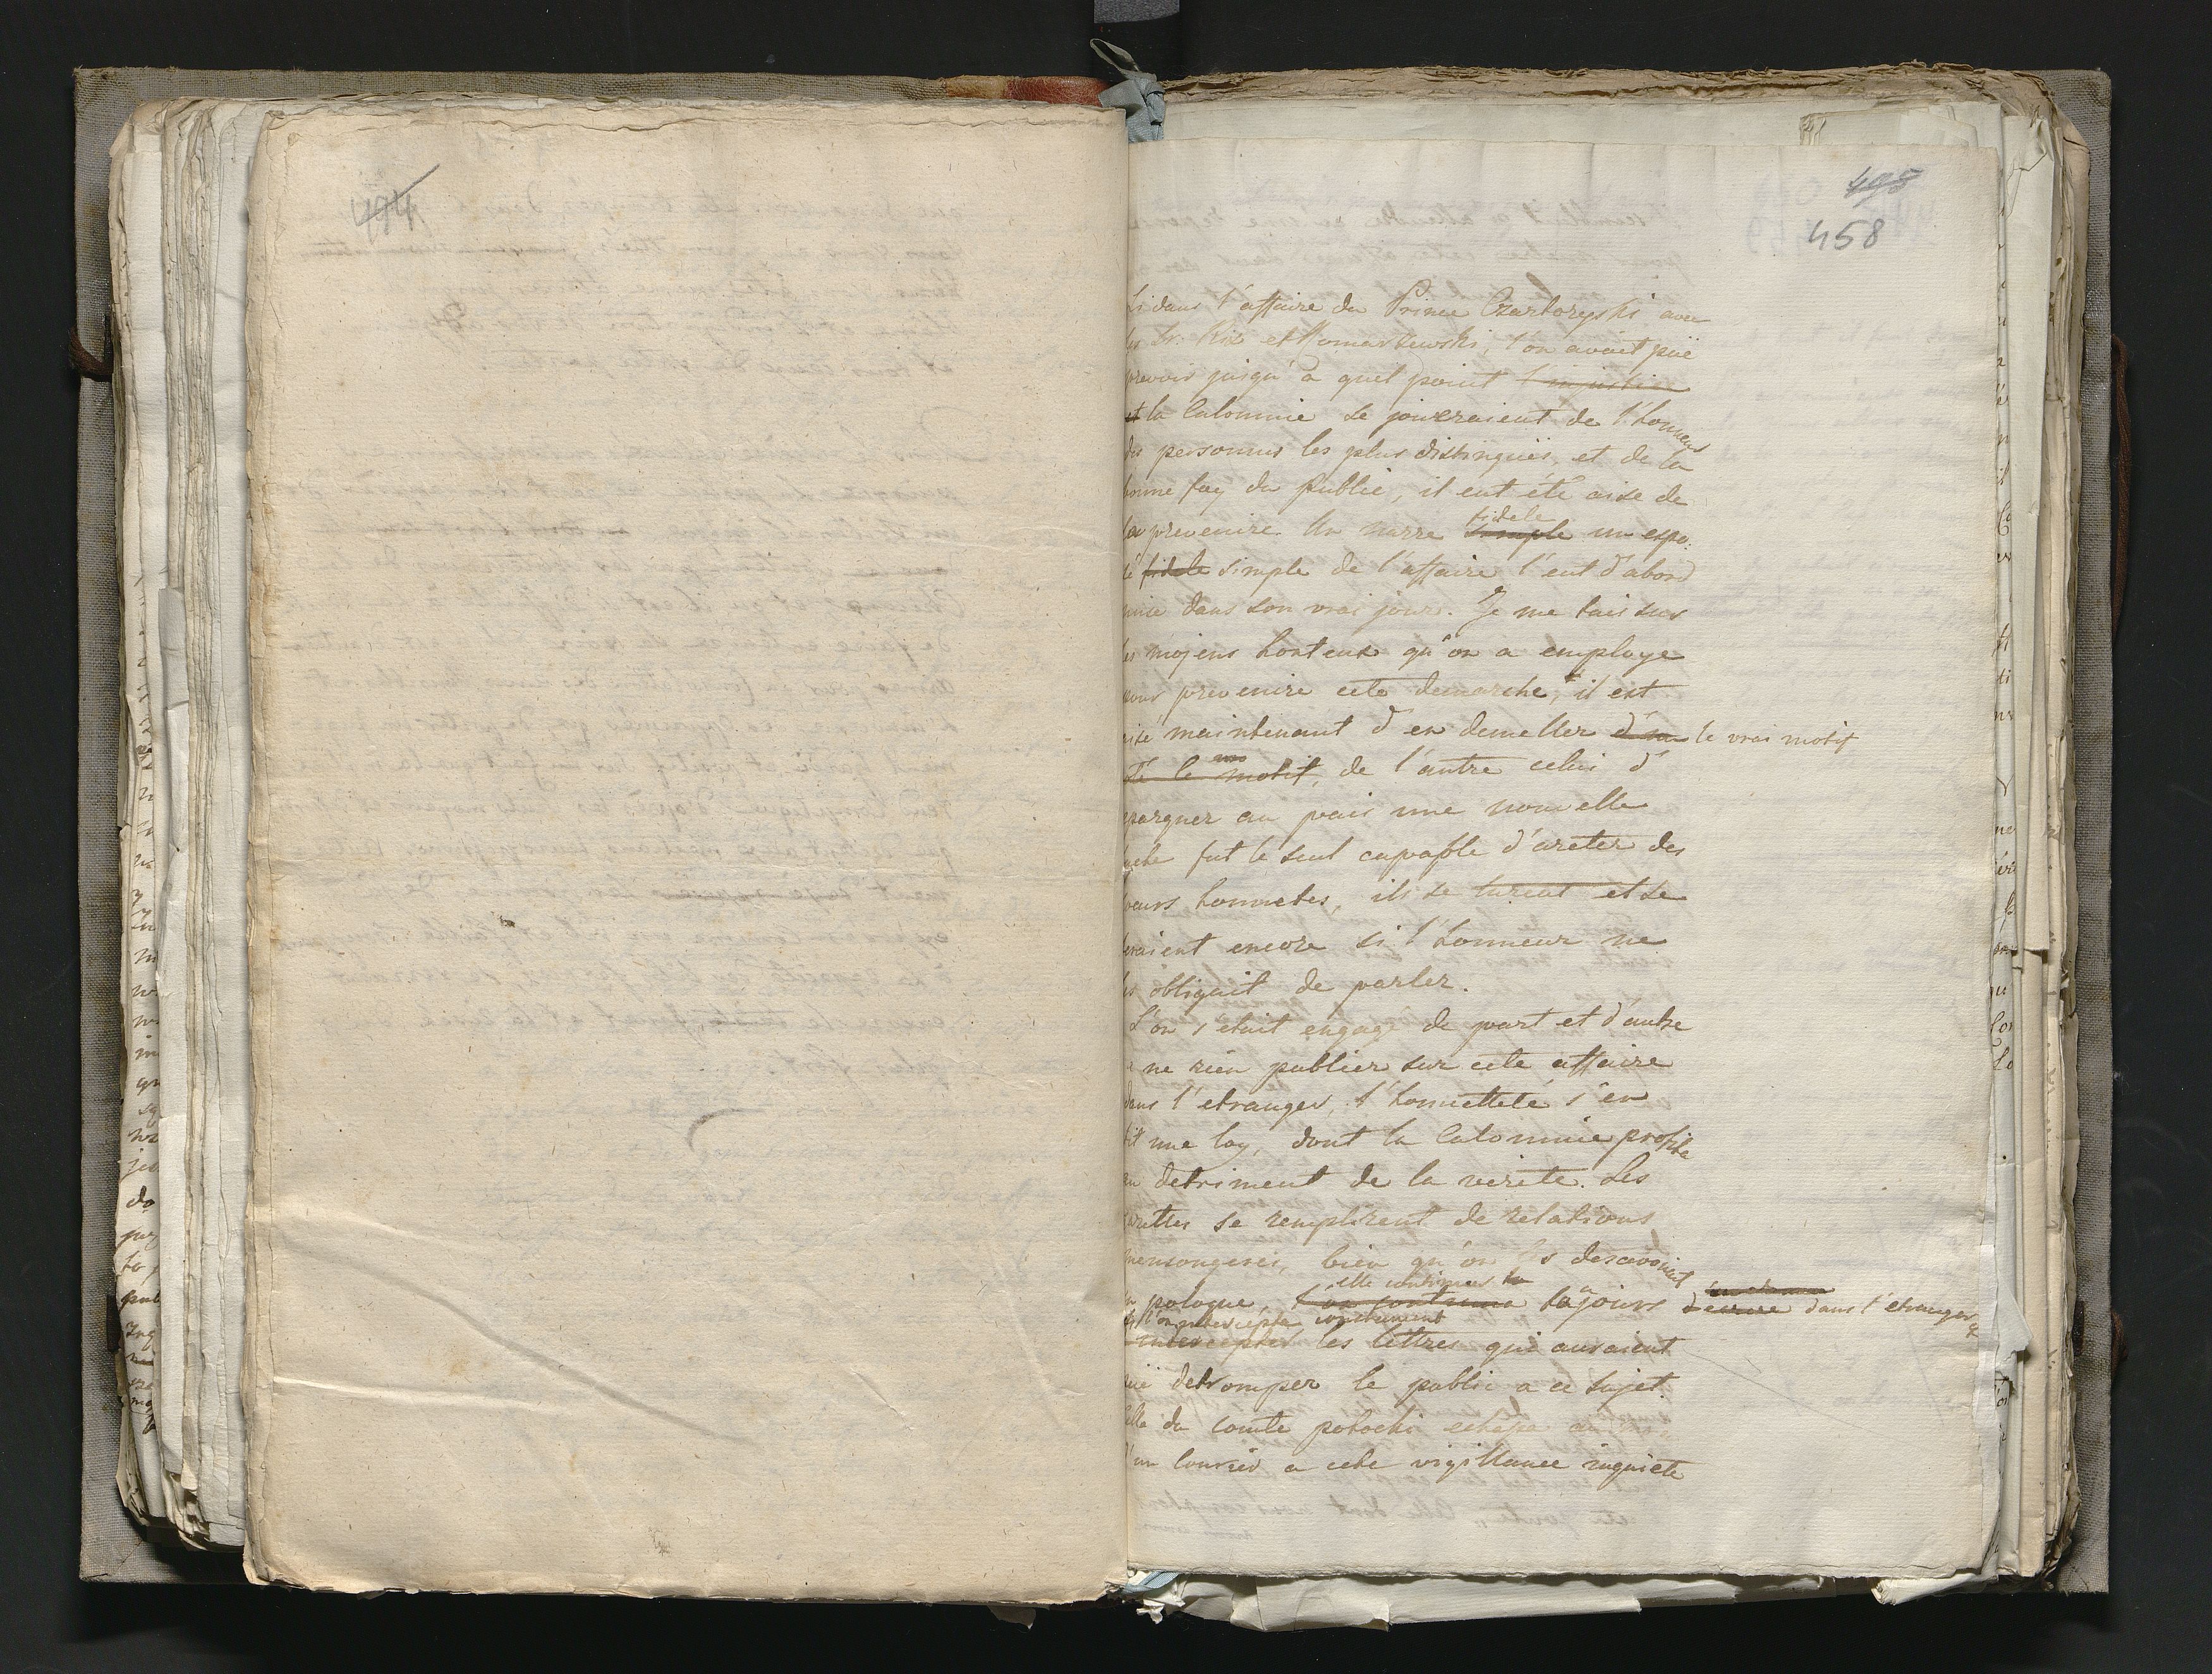 494
495
458
Si dans l'affaire du Prince Czartoryski avec
les Sr. Rix et Komarzewski, l'on avait pue
prevoir jusqu'a quel point l'injustice
et la Calomnie se joueraient de l'honneur
des personnes les plus distinguées, et de la
bonne foy du public, il eut été aise de
la prevenire. Un narre simple fidele un expo-
sé fidele simple de l'affaire l'eut d'abord
mise dans son vrai jour. Je me tais sur
les mojens honteux qu'on a employe
pour prevenire cete demarche, il est
aisé maintenant d'en demeller d'un le vrai motif
té le motif, de l'autre celui d'
epargner au pais une nouvelle
tache fut le seul capable d'areter des
coeurs honnetes, ils se turent et se
tairaient encore si l'honneur ne
les obligait de parler.
L'on s'etait engage de part et d'autre
a ne rien publier sur cete affaire
dans l'etranger, l'honnetteté s'en
fit une loy, dont la Calomnie profita
au detriment de la verite. Les
gazettes se remplirent de relations
mensongeres, bien qu'on les desavouait
elle continua
en pologne, l'on continua tojours d'ecrire dans l'etranger &
l'on intercepta
intercepter les lettres qui auraient
pue detromper le public a ce sujet.
Celle du comte potocki echapa
d'un Courier a cete vigillance inquiete